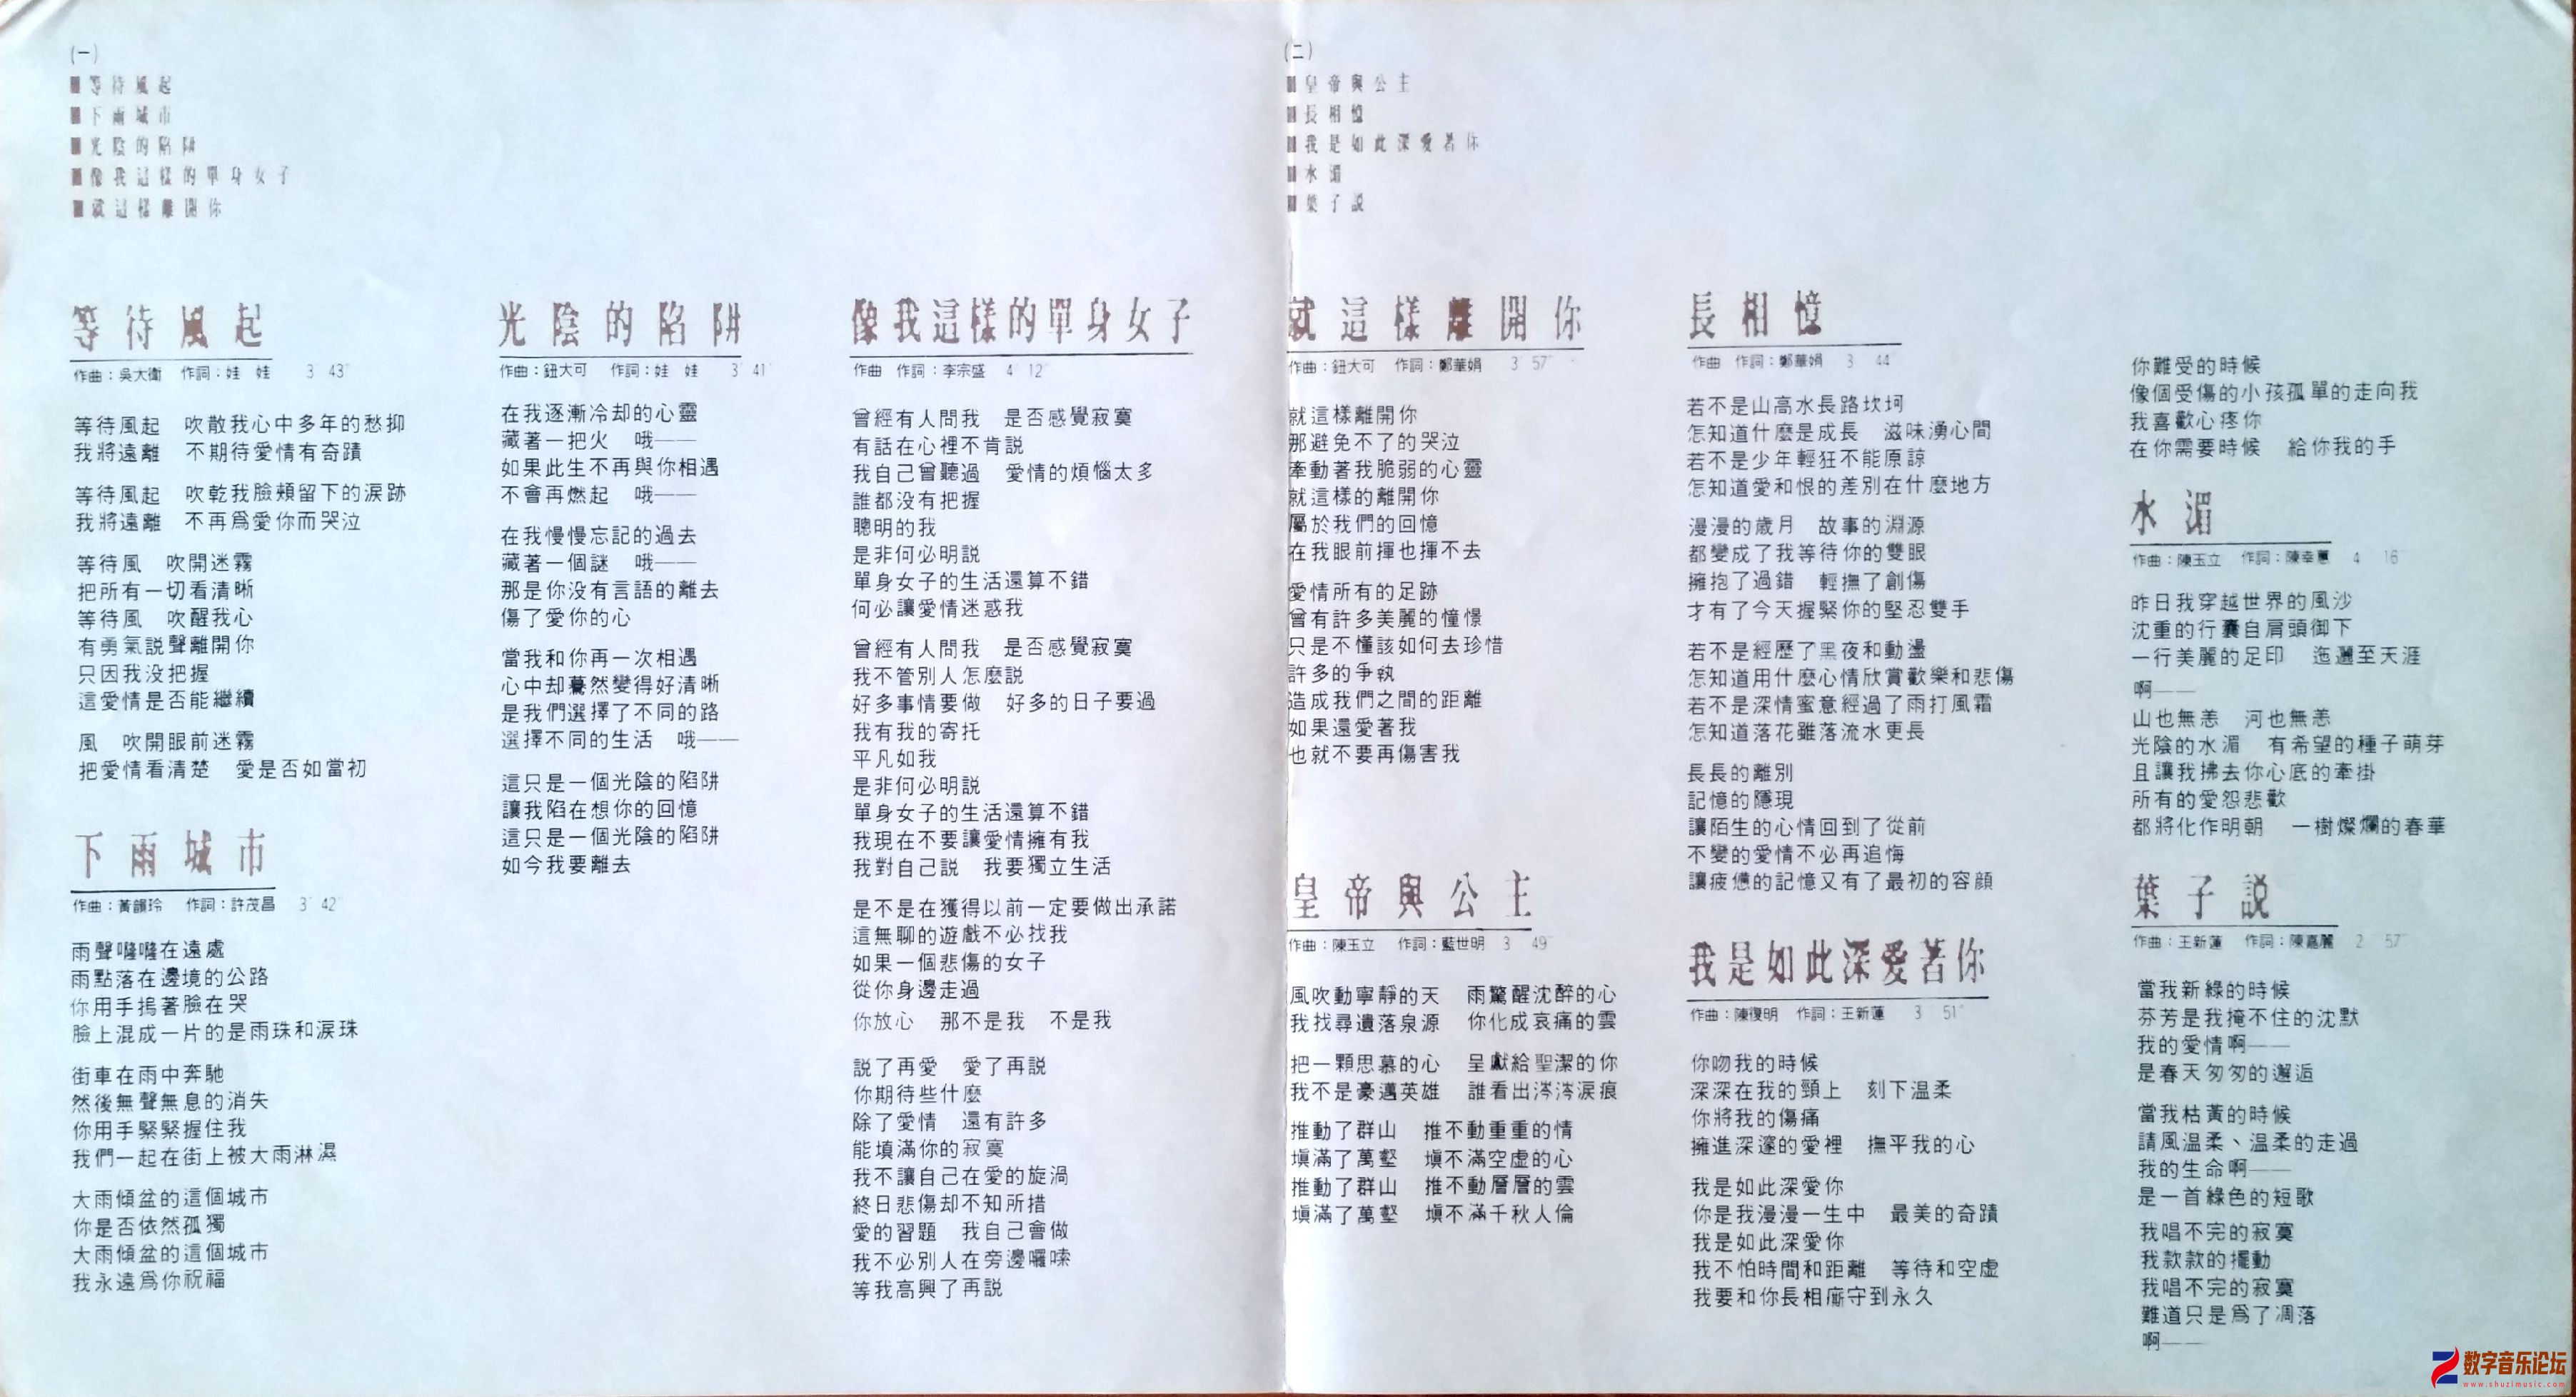 (一)
■等待風起
■下雨城市
■光陰的陷阱
■像我這樣的單身女子
■就這樣離開你
等待風起
作曲：吳大衛　作詞：娃 娃　3' 43"
等待風起　吹散我心中多年的愁抑
我將遠離　不期待愛情有奇蹟
等待風起　吹乾我臉頰留下的淚跡
我將遠離　不再爲愛你而哭泣
等待風　吹開迷霧
把所有一切看清晰
等待風　吹醒我心
有勇氣説聲離開你
只因我没把握
這愛情是否能繼續
風　吹開眼前迷霧
把愛情看清楚　愛是否如當初
下雨城市
作曲：黃韻玲　作詞：許茂昌　3' 42"
雨聲嗈嗈在遠處
雨點落在邊境的公路
你用手摀著臉在哭
臉上混成一片的是雨珠和淚珠
街車在雨中奔馳
然後無聲無息的消失
你用手緊緊握住我
我們一起在街上被大雨淋濕
大雨傾盆的這個城市
你是否依然孤獨
大雨傾盆的這個城市
我永遠爲你祝福
光陰的陷阱
作曲：鈕大可　作詞：娃 娃　3' 41"
在我逐漸冷却的心靈
藏著一把火　哦——
如果此生不再與你相遇
不會再燃起　哦——
在我慢慢忘記的過去
藏著一個謎　哦——
那是你没有言語的離去
傷了愛你的心
當我和你再一次相遇
心中却驀然變得好清晰
是我們選擇了不同的路
選擇不同的生活　哦——
這只是一個光陰的陷阱
讓我陷在想你的回憶
這只是一個光陰的陷阱
如今我要離去
像我這樣的單身女子
作曲　作詞：李宗盛　4' 12"
曾經有人問我　是否感覺寂寞
有話在心裡不肯説
我自己曾聽過　愛情的煩惱太多
誰都没有把握
聰明的我
是非何必明説
單身女子的生活還算不錯
何必讓愛情迷惑我
曾經有人問我　是否感覺寂寞
我不管別人怎麼説
好多事情要做　好多的日子要過
我有我的寄托
平凡如我
是非何必明説
單身女子的生活還算不錯
我現在不要讓愛情擁有我
我對自己説　我要獨立生活
是不是在獲得以前一定要做出承諾
這無聊的遊戲不必找我
如果一個悲傷的女子
從你身邊走過
你放心　那不是我　不是我
説了再愛　愛了再説
你期待些什麼
除了愛情　還有許多
能填滿你的寂寞
我不讓自己在愛的旋渦
終日悲傷却不知所措
愛的習題　我自己會做
我不必別人在旁邊囉嗦
等我高興了再説
(二)
■皇帝與公主
■長相憶
■我是如此深愛著你
■水湄
■葉子説
就這樣離開你
作曲：鈕大可　作詞：鄭華娟　3' 57"
就這樣離開你
那避免不了的哭泣
牽動著我脆弱的心靈
就這樣的離開你
屬於我們的回憶
在我眼前揮也揮不去
愛情所有的足跡
曾有許多美麗的憧憬
只是不懂該如何去珍惜
許多的爭執
造成我們之間的距離
如果還愛著我
也就不要再傷害我
皇帝與公主
作曲：陳玉立　作詞：藍世明　3' 49"
風吹動寧靜的天　雨驚醒沈醉的心
我找尋遺落泉源　你化成哀痛的雲
把一顆思慕的心　呈獻給聖潔的你
我不是豪邁英雄　誰看出涔涔淚痕
推動了群山　推不動重重的情
塡滿了萬壑　塡不滿空虛的心
推動了群山　推不動層層的雲
塡滿了萬壑　塡不滿千秋人倫
長相憶
作曲　作詞：鄭華娟　3' 44"
若不是山高水長路坎坷
怎知道什麼是成長　滋味湧心間
若不是少年輕狂不能原諒
怎知道愛和恨的差別在什麼地方
漫漫的歲月　故事的淵源
都變成了我等待你的雙眼
擁抱了過錯　輕撫了創傷
才有了今天握緊你的堅忍雙手
若不是經歷了黑夜和動盪
怎知道用什麼心情欣賞歡樂和悲傷
若不是深情蜜意經過了雨打風霜
怎知道落花雖落流水更長
長長的離別
記憶的隱現
讓陌生的心情回到了從前
不變的愛情不必再追悔
讓疲憊的記憶又有了最初的容顔
我是如此深愛著你
作曲：陳復明　作詞：王新蓮　3' 51"
你吻我的時候
深深在我的頸上　刻下温柔
你將我的傷痛
擁進深邃的愛裡　撫平我的心
我是如此深愛你
你是我漫漫一生中　最美的奇蹟
我是如此深愛你
我不怕時間和距離　等待和空虛
我要和你長相廝守到永久
你難受的時候
像個受傷的小孩孤單的走向我
我喜歡心疼你
在你需要時候　給你我的手
水湄
作曲：陳玉立　作詞：陳幸蕙　4' 16"
昨日我穿越世界的風沙
沈重的行囊自肩頭御下
一行美麗的足印　迤邐至天涯
啊——
山也無恙　河也無恙
光陰的水湄　有希望的種子萌芽
且讓我拂去你心底的牽掛
所有的愛怨悲歡
都將化作明朝　一樹燦爛的春華
葉子説
作曲：王新蓮　作詞：陳嘉麗　2' 57"
當我新綠的時候
芬芳是我掩不住的沈默
我的愛情啊——
是春天匆匆的邂逅
當我枯黃的時候
請風温柔、温柔的走過
我的生命啊——
是一首綠色的短歌
我唱不完的寂寞
我款款的擺動
我唱不完的寂寞
難道只是爲了凋落
啊——
数字音乐论坛
www.shuzimusic.com